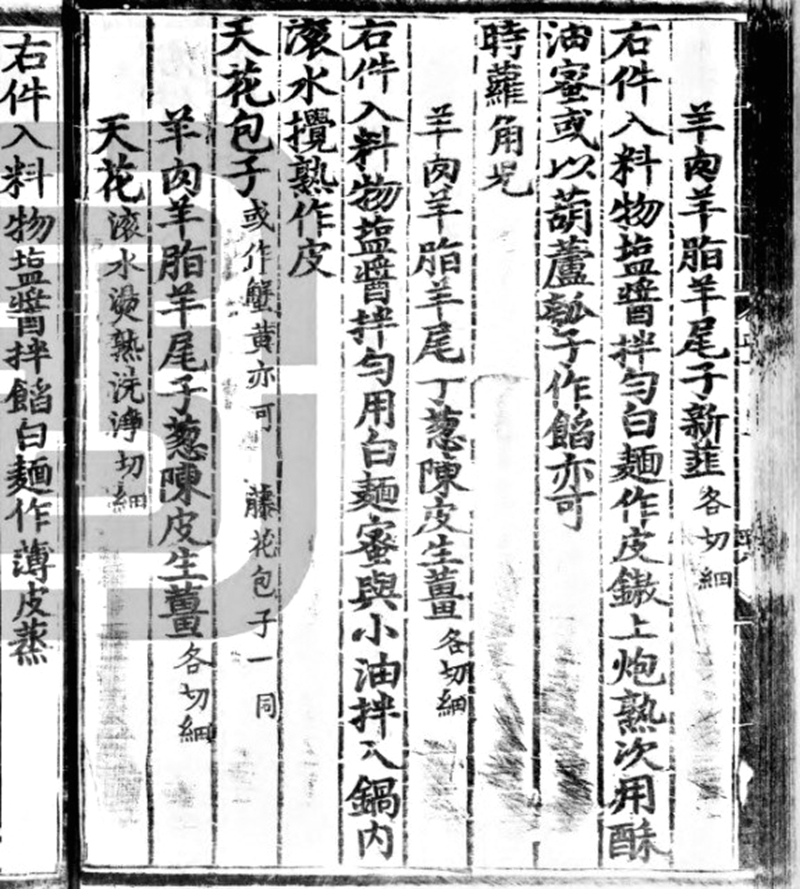 羊肉羊脂羊尾子新韮各切細
右件入料物塩醬拌勻白麵作皮鏊上炮熟次用酥
油蜜或以葫蘆瓠子作餡亦可
時蘿角児
羊肉羊脂羊尾丁葱陳皮生薑各切細
右件入料物塩醬拌勻用白麵蜜與小油拌入鍋内
滾水攪熟作皮
天花包子或作蟹黄亦可 藤花包子一同
羊肉羊脂羊尾子葱陳皮生薑各切細
天花滾水燙熟洗浄切細
右件入料物塩醬拌餡白麵作薄皮蒸